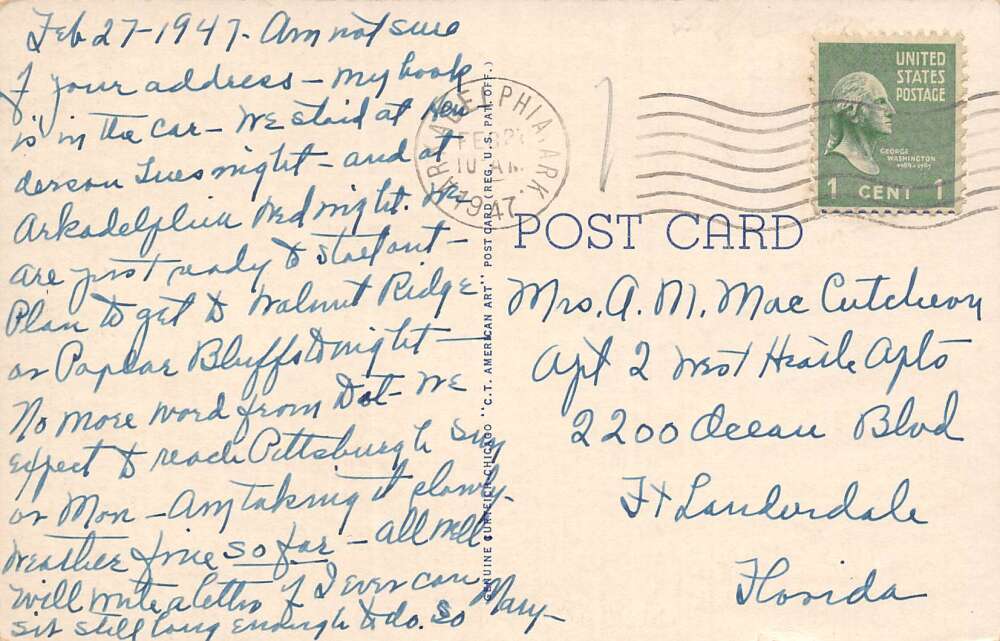 Feb 27-1947. Am not sure
of your address - my book
is in the car - We staid at Hen
derson Tues night - and at
Arkadelphia Wed night. We
are just ready to start out -
Plan to get to Walnut Ridge
or Poplar Bluffs tonight -
No more word from Dot - We
expect to reach Pittsburgh Sun
or Mon - Am taking it slowly -
Weather fine so far - all well
will write a letter if I ever can
sit still long enough to do so
Mary -
GENUINE CURTEICH-CHICAGO "C.T. AMERICAN ART" POST CARD (REG. U.S. PAT. OFF.)
ARKADELPHIA, ARK.
FEB 2
10 AM
1947
UNITED
STATES
POSTAGE
GEORGE
WASHINGTON
1 CENT 1
POST CARD
Mrs. A. M. Mac Cutcheon
Apt 2 West Heath Apts
2200 Ocean Blvd
Ft Lauderdale
Florida